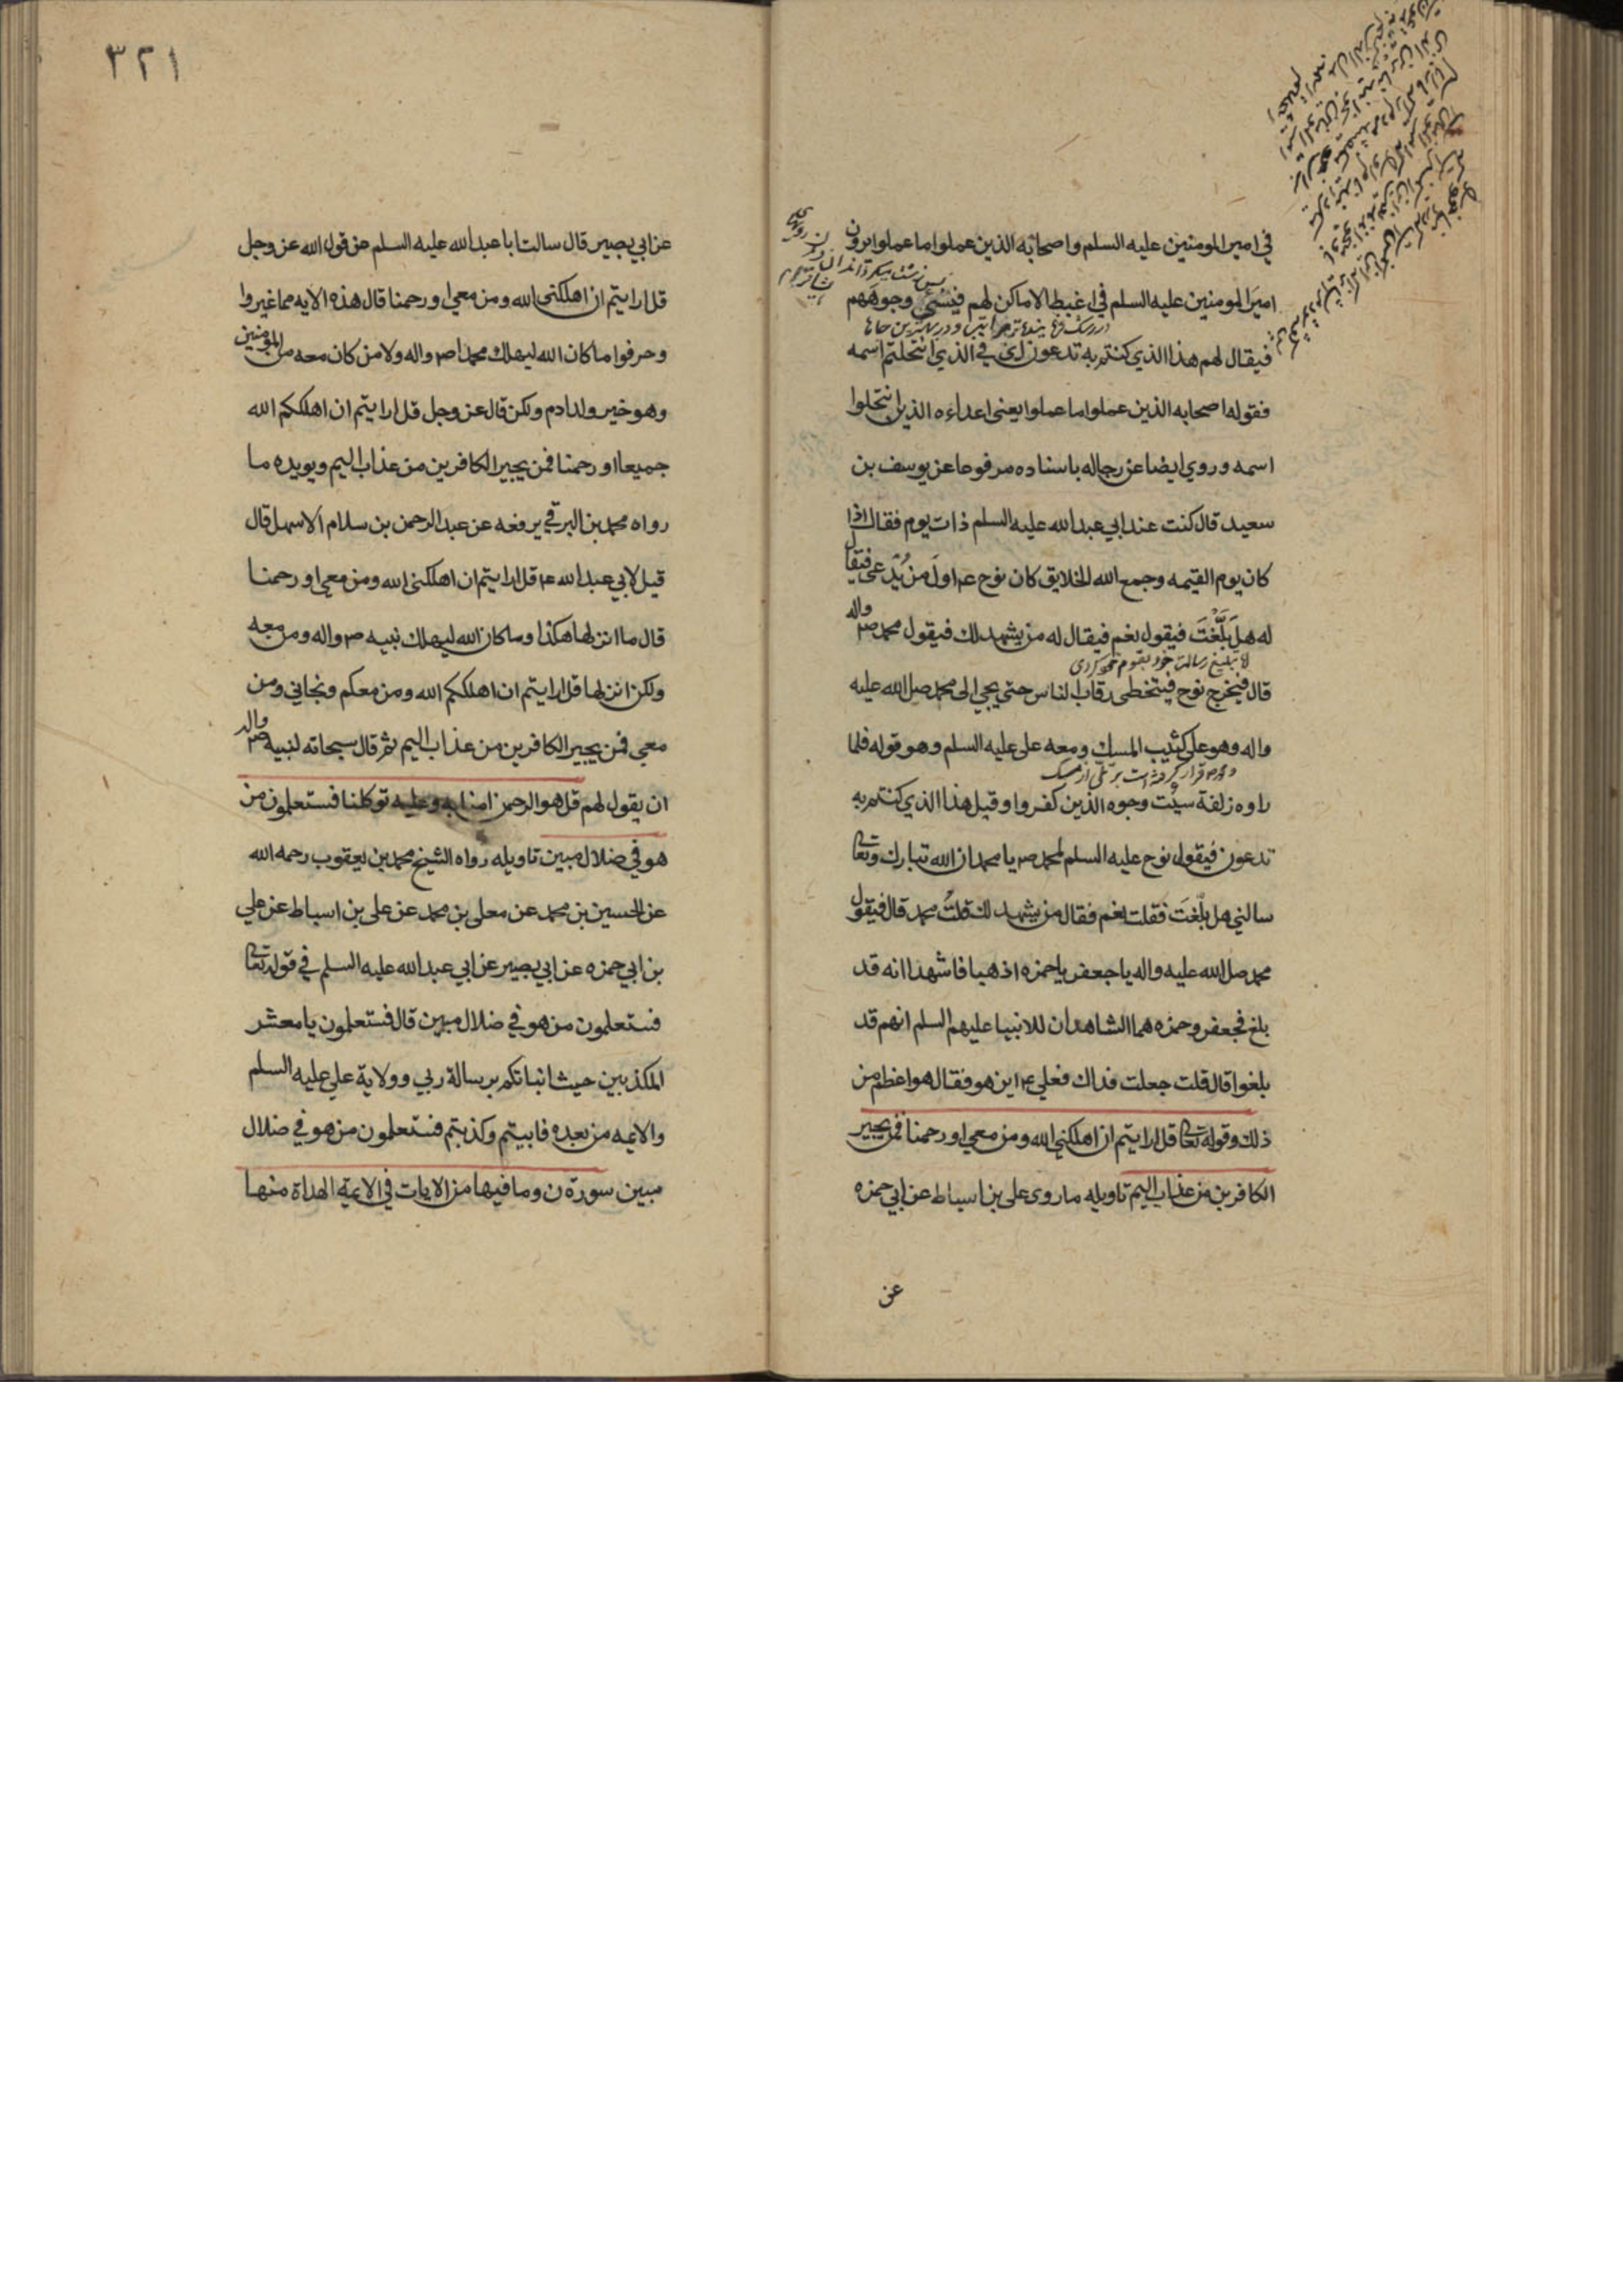 في امير المومنين عليه السلم واصحابه الذين عملوا ما عملوا يرون
امير المومنين عليه السلم في اغبط الاماكن لهم فيسيئ وجوههم
فيقال لهم هذا الذي كنتم به تدعون اي في الذي انتحلتم اسمه
فقوله اصحابه الذين عملوا ما عملوا يعني اعداءه الذين انتحلوا
اسمه وروي ايضا عن رجاله باسناده مرفوعا عن يوسف بن
سعيد قال كنت عند ابي عبد الله عليه السلم ذات يوم فقال اذا
كان يوم القيمه وجمع الله الخلايق كان نوح عم اول من يُدعى فيقال
له هل بَلَّغْتَ فيقول نعم فيقال له من يشهد لك فيقول محمد صم واله
قال فيخرج نوح فيتخطى رقاب الناس حتى يجي الى محمد صلى الله عليه
واله وهو على كثيب المسك ومعه علي عليه السلم وهو قوله فلما
راوه زلفة سيئت وجوه الذين كفروا وقيل هذا الذي كنتم به
تدعون فيقول نوح عليه السلم لمحمد صم يا محمد ان الله تبارك وتعالى
سالني هل بلّغتَ فقلت نعم فقال من يشهد لك قلتُ محمد قال فيقول
محمد صلى الله عليه واله يا جعفر يا حمزه اذهبا فاشهدا انه قد
بلغ فجعفر وحمزه هما الشاهدان للانبيا عليهم السلم انهم قد
بلغوا قال قلت جعلت فداك فعلي عم اين هو فقال هو اعظم من
ذلك وقوله تعالى قل ارايتم ان اهلكني الله ومن معي او رحمنا فمن يجير
الكافرين من عذاب اليم تاويله ما روى علي بن اسباط عن ابي حمزه
عن
٣٢١
عن ابي بصير قال سالت ابا عبد الله عليه السلم عن قول الله عز وجل
قل ارايتم ان اهلكنى الله ومن معي او رحمنا قال هذه الايه مما غيروا
وحرفوا ما كان الله ليهلك محمدا صم واله ولا من كان معه من المومنين
وهو خير ولد ادم ولكن قال عز وجل قل ارايتم ان اهلككم الله
جميعا او رحمنا فمن يجير الكافرين من عذاب اليم ويويده ما
رواه محمد بن البرقي يرفعه عن عبد الرحمن بن سلام الاسهل قال
قيل لابي عبد الله عم قل ارايتم ان اهلكنى الله ومن معي او رحمنا
قال ما انزلها هكذا وما كان الله ليهلك نبيه صم واله ومن معه
ولكن انزلها قل ارايتم ان اهلككم الله ومن معكم ونجاني ومن
معي فمن يجير الكافرين من عذاب اليم ثم قال سبحانه لنبيه صم واله
ان يقول لهم قل هو الرحمن امنا به وعليه توكلنا فستعلمون من
هو في ضلال مبين تاويله رواه الشيخ محمد بن يعقوب رحمه الله
عن الحسين بن محمد عن معلى بن محمد عن علي بن اسباط عن علي
بن ابي حمزه عن ابي بصير عن ابي عبد الله عليه السلم في قوله تعالى
فستعلمون من هو في ضلال مبين قال فستعلمون يا معشر
المكذبين حيث انباتكم برسالة ربي وولاية علي عليه السلم
والايمه من بعده فابيتم وكذبتم فستعلمون من هو في ضلال
مبين سورة ن وما فيها من الايات في الايمة الهداة منها